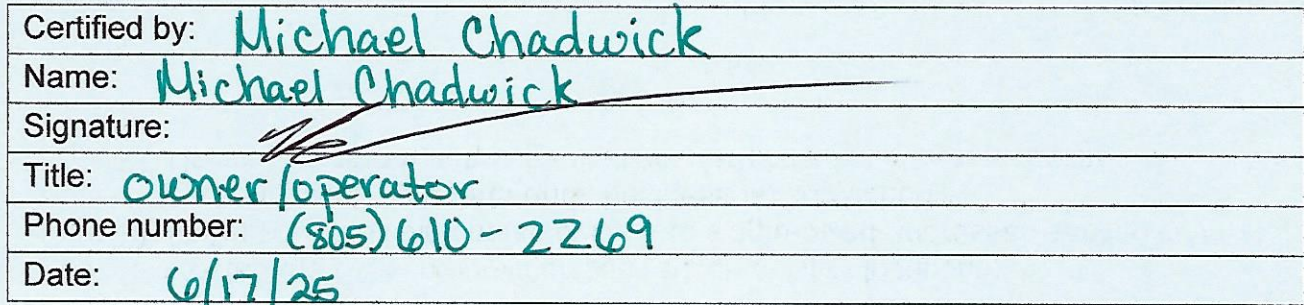 Certified by: Michael Chadwick
Name: Michael Chadwick
Signature:
Title: owner/operator
Phone number: (805) 610-2269
Date: 6/17/25